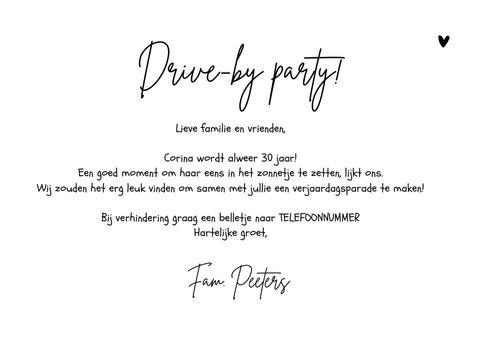 Drive-by party!
Lieve familie en vrienden,
Corina wordt alweer 30 jaar!
Een goed moment om haar eens in het zonnetje te zetten, lijkt ons.
Wij zouden het erg leuk vinden om samen met jullie een verjaardagsparade te maken!
Bij verhindering graag een belletje naar TELEFOONNUMMER
Hartelijke groet,
Fam. Peeters